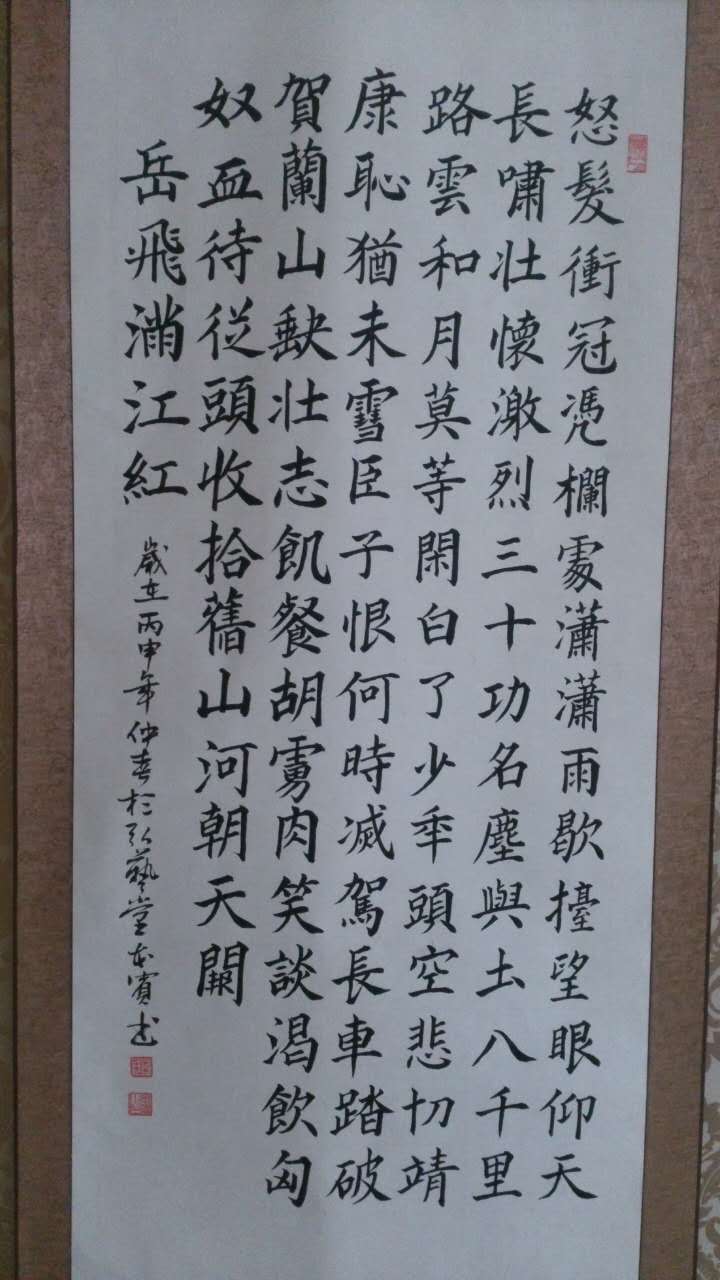 怒髮衝冠憑欄處瀟瀟雨歇擡望眼仰天
長嘯壯懷激烈三十功名塵與土八千里
路雲和月莫等閑白了少年頭空悲切靖
康恥猶未雪臣子恨何時滅駕長車踏破
賀蘭山缺壯志飢餐胡虜肉笑談渴飲匈
奴血待從頭收拾舊山河朝天闕
岳飛滿江紅
歲在丙申年仲春於弘藝堂本賓書